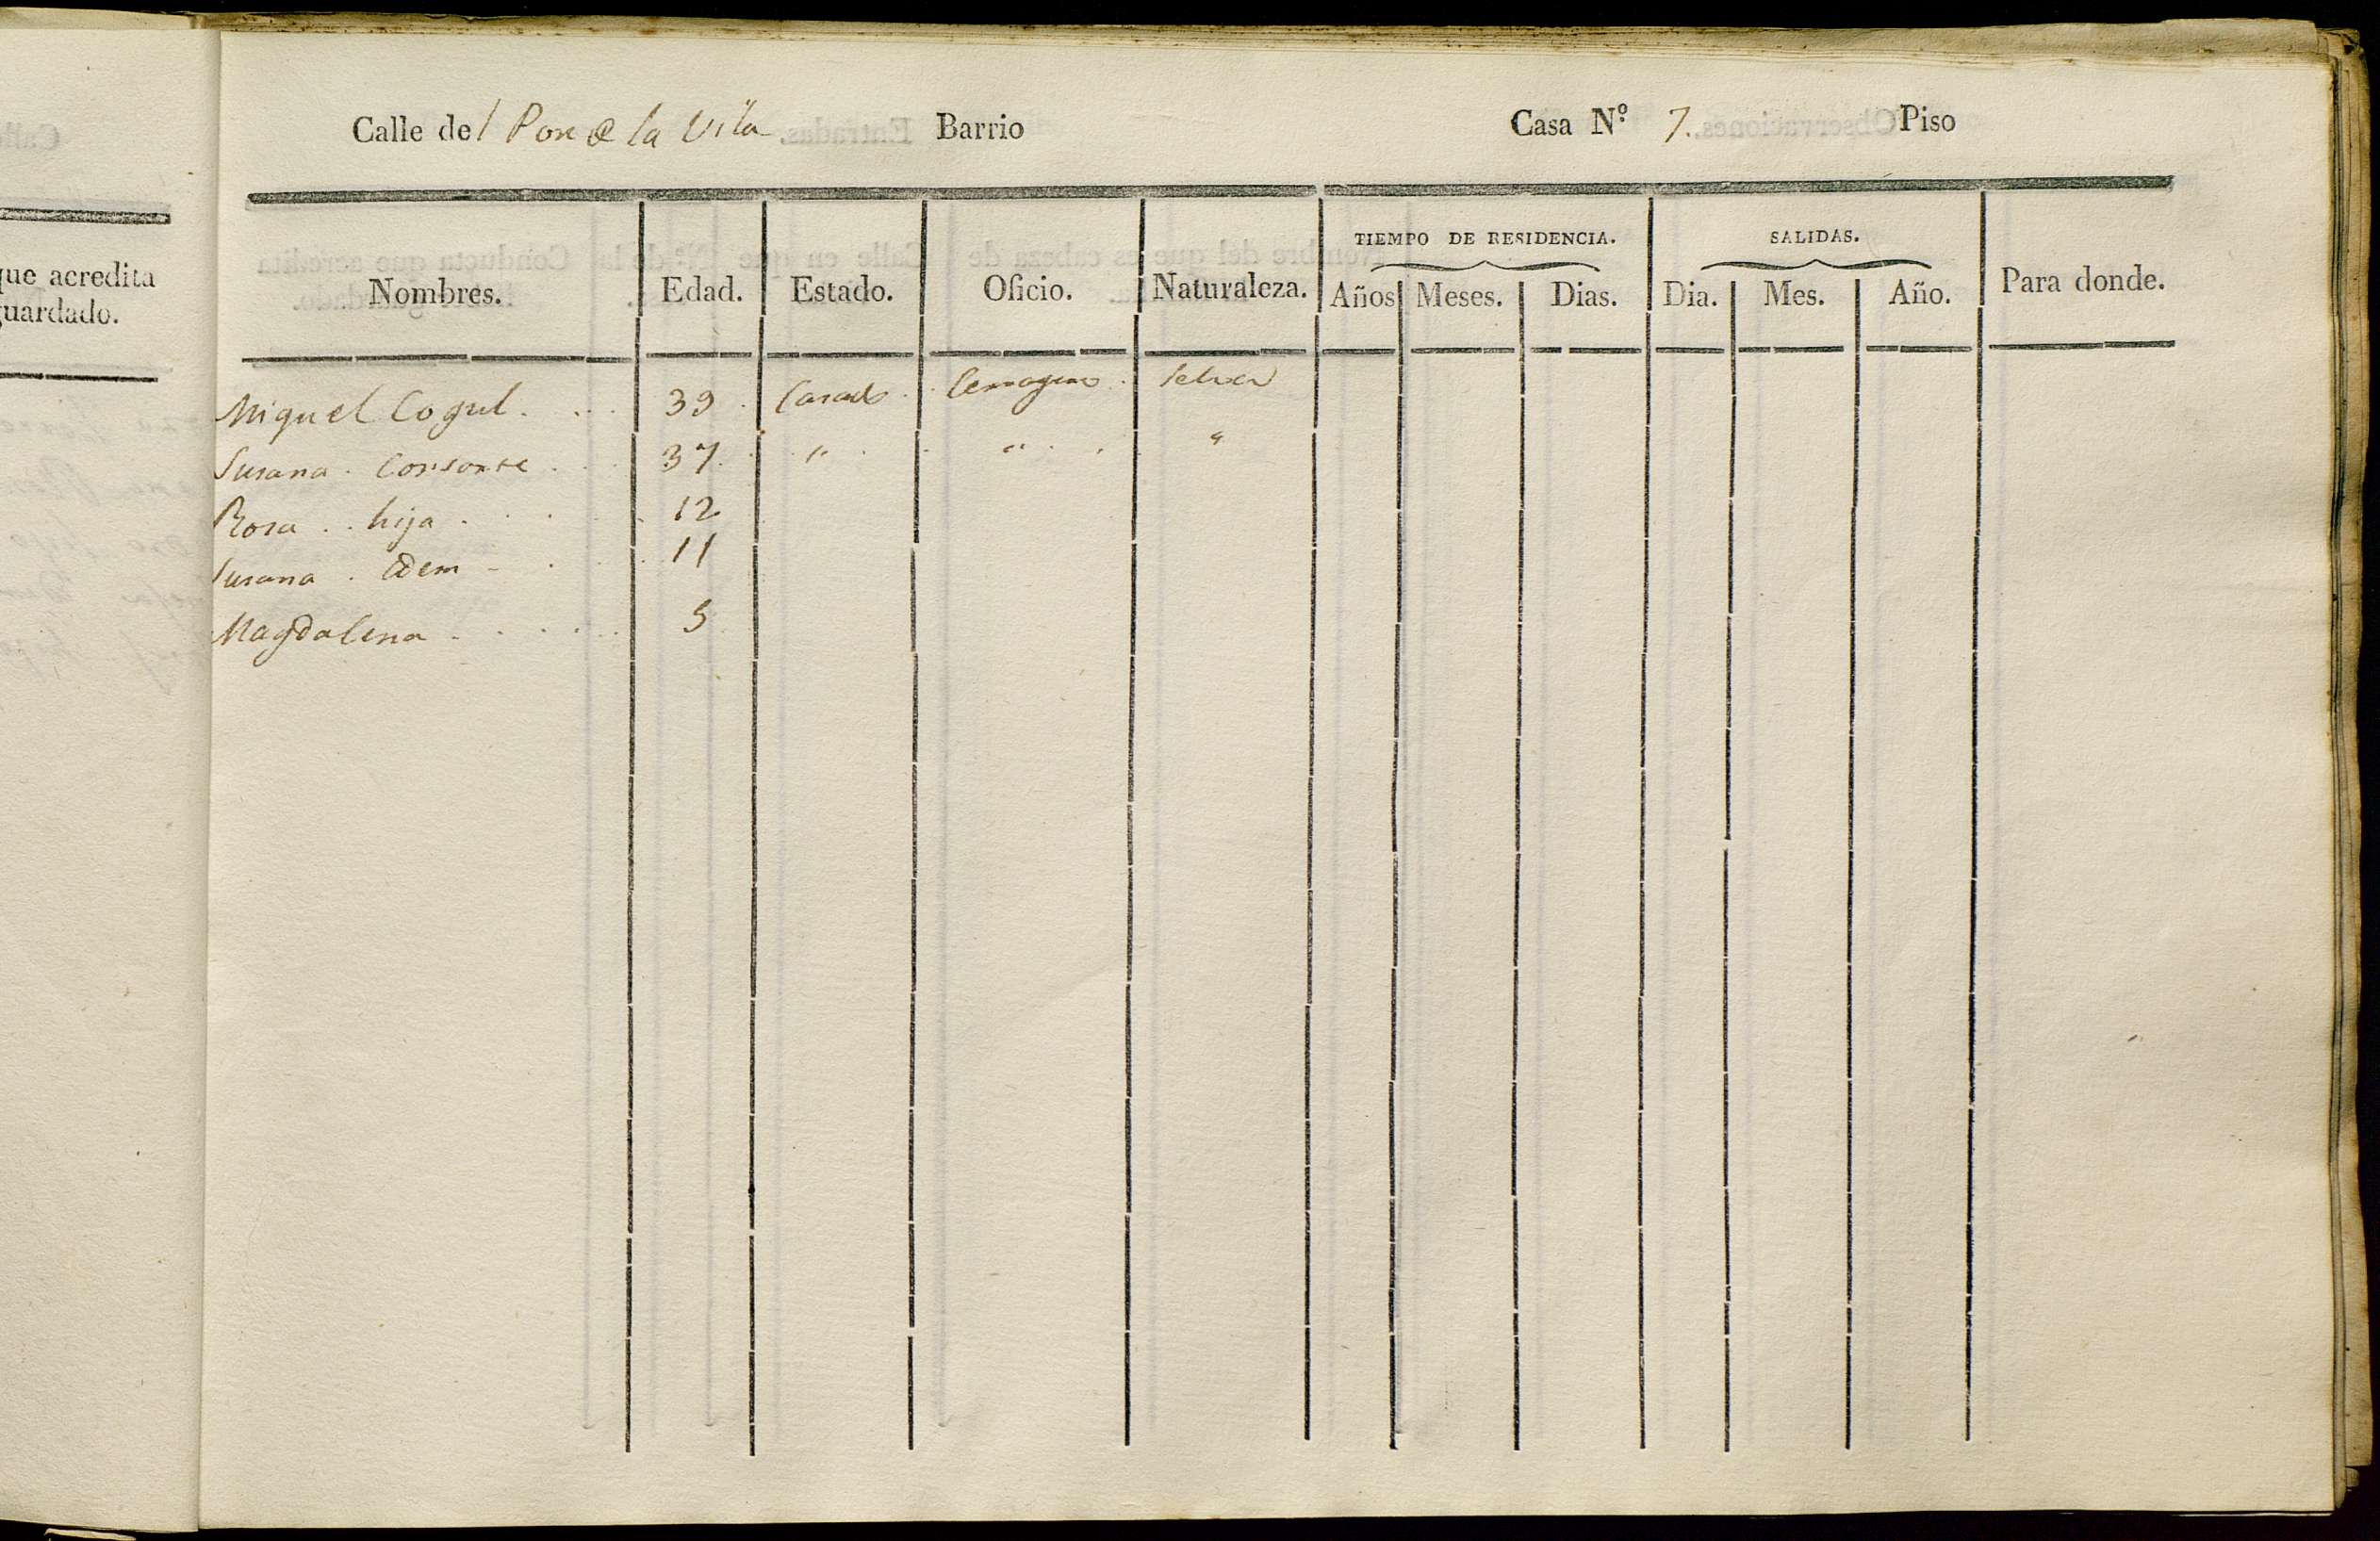 que acredita
guardado.
Calle del Pou de la Vila Barrio Casa Nº 7. Piso
TIEMPO DE RESIDENCIA. SALIDAS.
Nombres. Edad. Estado. Oficio. Naturaleza. Años Meses. Dias. Dia. Mes. Año. Para donde.
Miquel Cogul. 39 Casado Selva
Susana. Consorte 37 " " "
Rosa.. hija 12
Susana. Idem 11
Magdalena 5